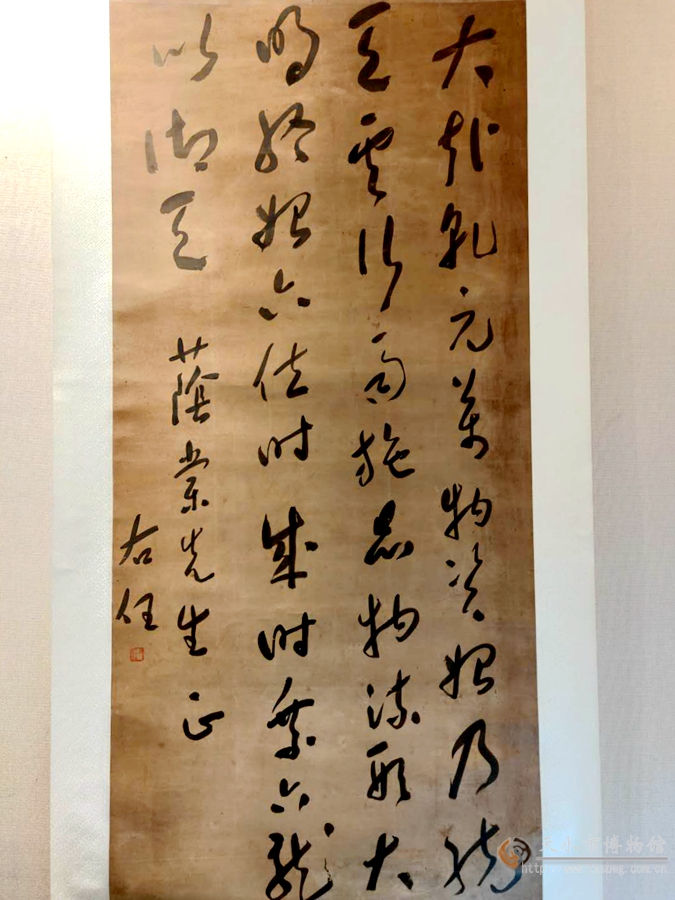 大哉乾元萬物資始乃統
天雲行雨施品物流形大
明終始六位時成時乘六龍
以御天
蔭棠先生正
右任
博物館